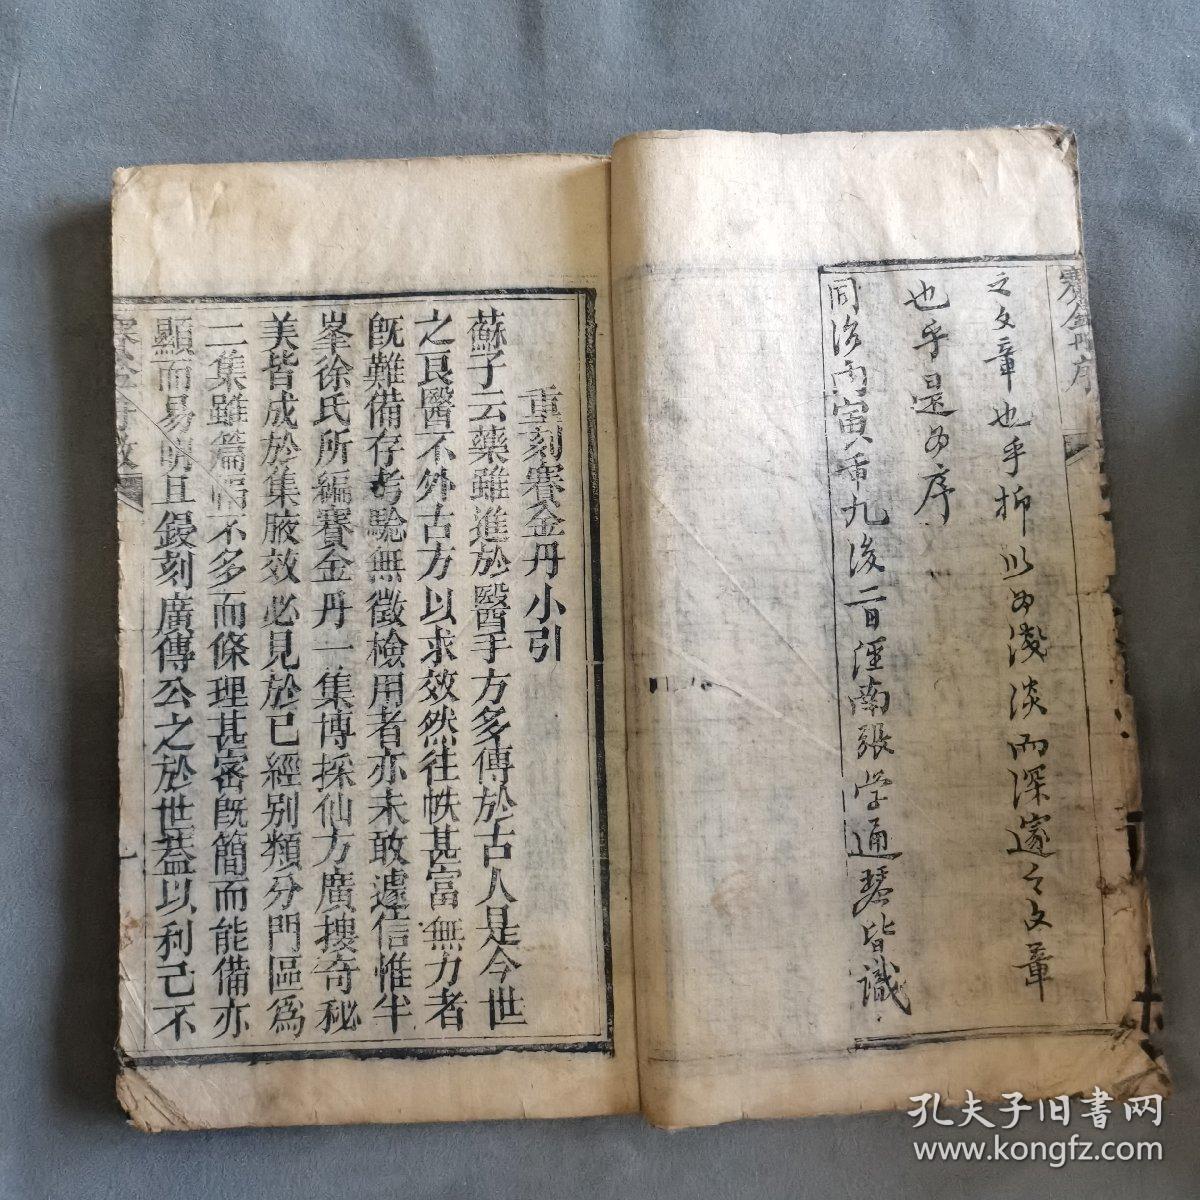 賽金丹序
之文章也乎抑以為淺淡而深邃之文章
也乎是為序
同治丙寅重九後二日涇南張学通琴皆識
重刻賽金丹小引
蘇子云藥雖進於醫手方多傳於古人是今世
之良醫不外古方以求效然往帙甚富無力者
旣難備存考驗無徵檢用者亦未敢遽信惟半
峯徐氏所編賽金丹一集博採仙方廣搜奇秘
美皆成於集腋效必見於已經別類分門區為
二集雖篇幅不多而條理甚密旣簡而能備亦
顯而易明且鋟刻廣傳公之於世葢以利己不
孔夫子旧書网
www.kongfz.com